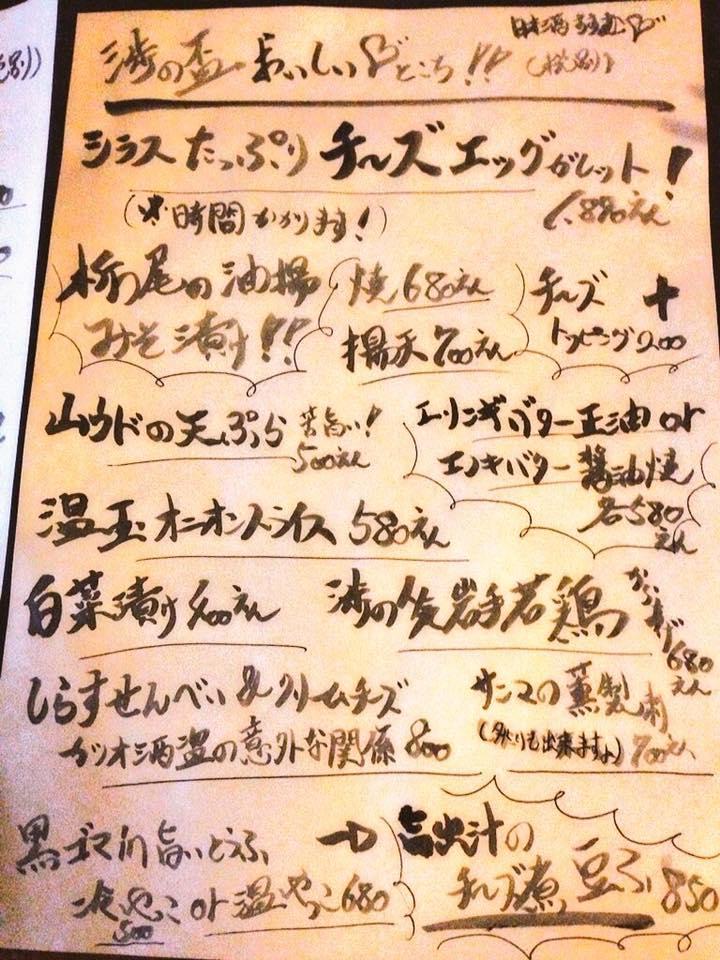 渉の盃 おいしいどころ!!
(税別)
シラスたっぷりチーズエッグガレット!
(※時間かかります!)
1,880えん
栃尾の油揚
みそ漬け!!
焼 680えん
揚手 700えん
チーズ +
トッピング200
山ウドの天ぷら 苦旨い!
500えん
エリンギバター正油 or
エノキバター醤油焼
各580
えん
温玉オニオンスライス 580えん
白菜漬け 500えん
渉の人気岩手若鶏
からあげ
680
えん
しらすせんべい&クリームチーズ
カツオ酒盗の意外な関係 800
サンマの薫製刺
(炙りも出来ますよ) 700えん
黒ゴマの旨いどうふ →
冷やっこ or 温やっこ 680
500
旨出汁の
チーズ煮豆ふ 850